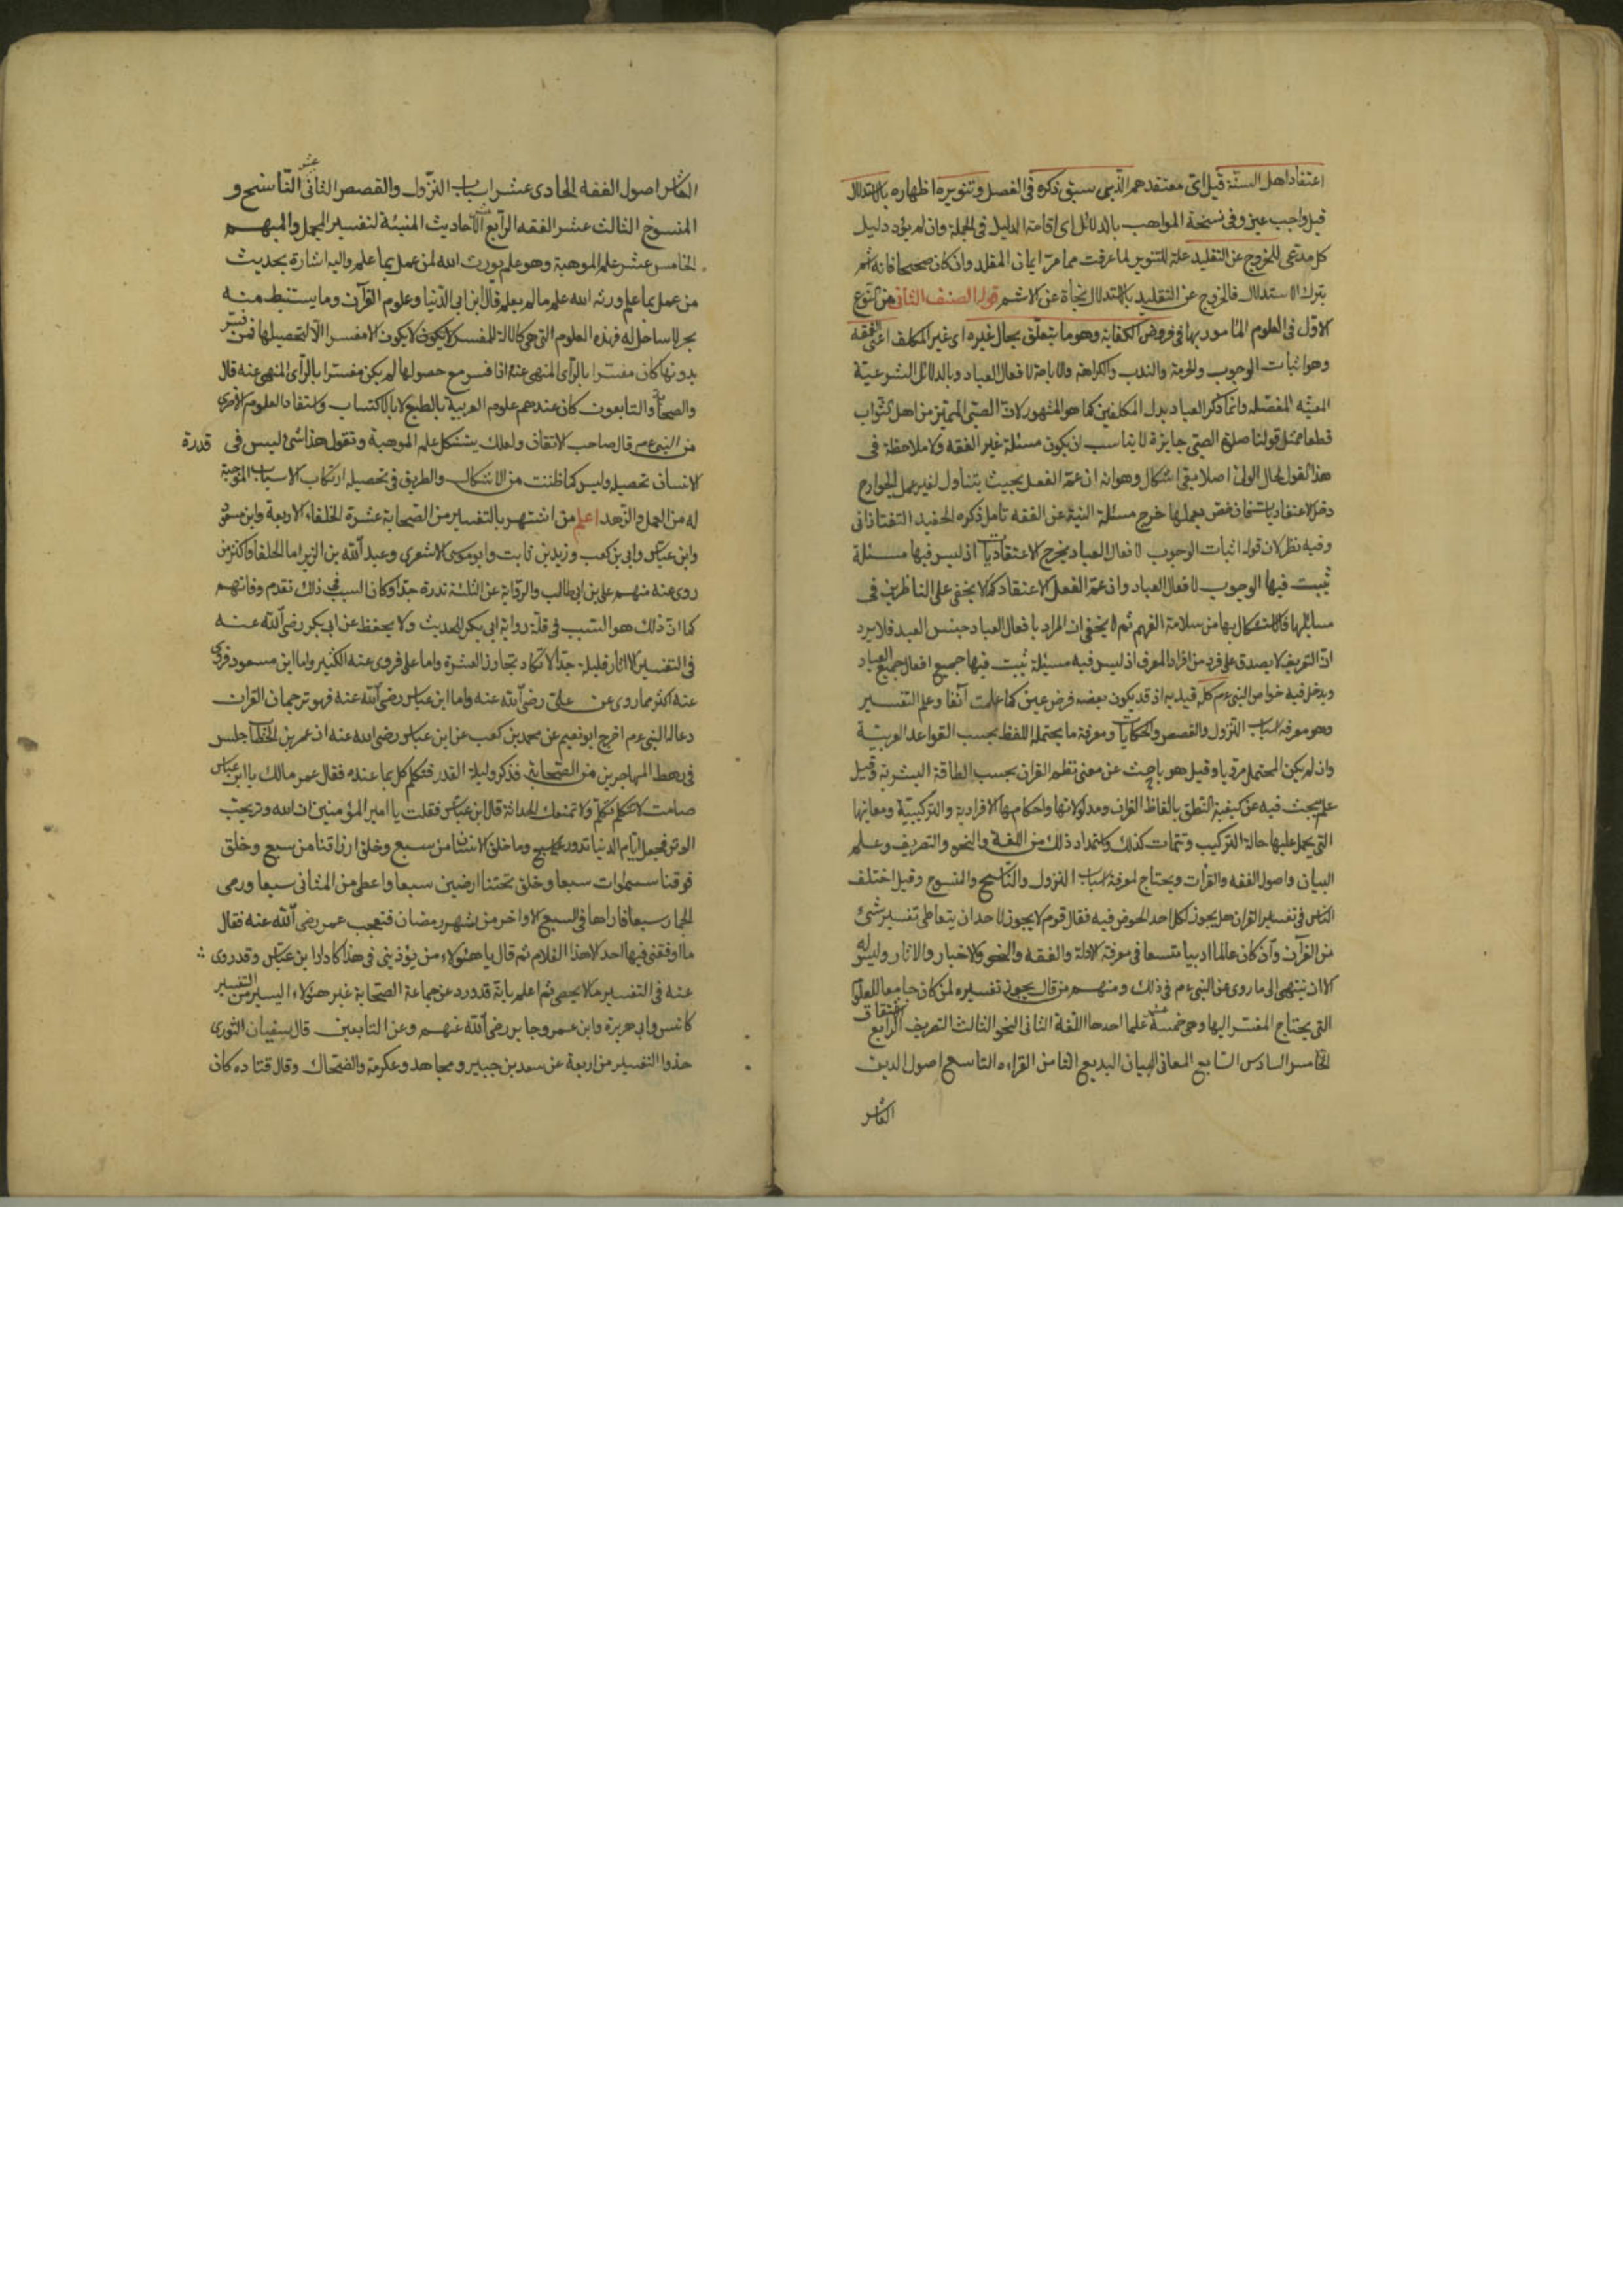 اعتقاد اهل السنة قيل اى معتقدهم الذى سبق ذكره فى الفصل وتنويره اظهاره بالاستدلال
قيل واجب عين وفى نسخة المواهب بالدلائل اى اقامة الدليل فى الجملة وان لم يؤد دليل
كل مدعى للخروج عن التقليد علة للتنوير لما عرفت مما مر ايمان المقلد وان كان صحيحا فانه اثم
بترك الاستدلال فالخروج عن التقليد بالاستدلال نجاة عن الاثم قوله الصنف الثانى من النوع
الاول فى العلوم المأمور بها فى فروض الكفاية وهو ما يتعلق بحال غيره اى غير المكلف اعنى الفقه
وهو اثبات الوجوب والحرمة والندب والكراهة والاباحة لافعال العباد وبالدلائل الشرعية
المفصله وانما ذكر العباد بدل المكلفين كما هو المشهور لان الصبى المميز من اهل الثواب
قطعا فمثل قولنا صلوة الصبى جايزة لا يناسب ان يكون مسئلة غير الفقه ولا ملاحظة فى
هذا القول لحال الولى اصلا بقى اشكال وهو انه ان عمّ الفعل بحيث يتناول لغير عمل الجوارح
دخل الاعتقاديات وان خص بعملها خرج مسئلة النية عن الفقه تأمل ذكره الحفيد التفتازانى
وفيه نظر لان قوله اثبات الوجوب لافعال العباد يخرج الاعتقاديات اذ ليس فيها مسئلة
يثبت فيها الوجوب لافعال العباد وان عمّ الفعل الاعتقاد كما لا يخفى على الناظرين فى
مسائلها فالاشكال بها من سلامة الفهم ثم لا يخفى ان المراد بافعال العباد جنس العبد فلا يرد
ان التعريف لا يصدق على فرد من افراد المعرف اذ ليس فيه مسئلة يثبت فيها جميع افعال جميع العباد
ويدخل فيه خواص النبى عم كله قيد به اذ قد يكون بعضه فرض عين كما علمت آنفا وعلم التفسير
وهو معرفة اسباب النزول والقصص والحكايات ومعرفة ما يحتمله اللفظ بحسب القواعد العربية
وان لم يكن المحتمل مرويا وقيل هو باحث عن معنى نظم القران بحسب الطاقة البشرية وقيل
علم يبحث فيه عن كيفية النطق بالفاظ القران ومدلولاتها واحكامها الافرادية والتركيبية ومعانيها
التى يحمل عليها حالة التركيب وتتمات كذلك واستمداد ذلك من اللغة والنحو والتصريف وعلم
البيان واصول الفقه والقرآت ويحتاج لمعرفة اسباب النزول والناسخ والمنسوخ وقيل اختلف
الناس فى تفسير القران هل يجوز لكل احد الخوض فيه فقال قوم لا يجوز لاحد ان يتعاطى تفسير شئ
من القرآن وان كان عالما اديبا متسعا فى معرفة الادلة والفقه والنحو والاخبار والاثار وليس له
الا ان ينتهى الى ما روى عن النبى عم فى ذلك ومنهم من قال يجوز تفسيره لمن كان جامعا للعلوم
التى يحتاج المفسر اليها وهى خمسة عشر علما احدها اللغة الثانى النحو الثالث التصريف الرابع الاشتقاق
الخامس السادس السابع المعانى البيان البديع الثامن القراءه التاسع اصول الدين
العاشر
العاشر اصول الفقه الحادى عشر اسباب النزول والقصص الثانى عشر الناسخ و
المنسوخ الثالث عشر الفقه الرابع عشر الاحاديث المبينة لتفسير المجمل والمبهم
الخامس عشر علم الموهبة وهو علم يورث الله لمن عمل بما علم واليه اشارة بحديث
من عمل بما علم ورثه الله علم ما لم يعلم قال ابن ابى الدنيا وعلوم القرآن وما يستنبط منه
بحر لا ساحل له فهذه العلوم التى هى كالالة للمفسر لا يكون مفسرا الا لتحصيلها فمن فسّر
بدونها كان مفسرا بالرأى المنهى عنه اذا فسر مع حصولها لم يكن مفسرا بالرأى المنهى عنه قال
والصحابة والتابعون كان عندهم علوم العربية بالطبع لا بالاكتساب واستفاد العلوم الاخرى
من النبى عم قال صاحب الاتقان ولعلك يستشكل علم الموهبة وتقول هذا شئ ليس فى قدرة
الانسان تحصيله وليس كما ظننت من الاشكال والطريق فى تحصيله ارتكاب الاسباب الموجبة
له من العمل والزهد اعلم من اشتهر بالتفسير من الصحابة عشرة الخلفاء الاربعة وابن مسعود
وابن عباس وابى بن كعب وزيد بن ثابت وابو موسى الاشعرى وعبد الله بن الزبير اما الخلفا فاكثر من
روى عنه منهم على بن ابى طالب والرواية عن الثلثة ندرة جدا وكان السبب فى ذلك تقدم وفاتهم
كما ان ذلك هو السبب فى قلة رواية ابى بكر للحديث ولا يحفظ عن ابى بكر رضى الله عنه
فى التفسير الا اثار قليلة جدا لا تكاد تجاوز العشرة واما على فروى عنه الكثير واما ابن مسعود فروى
عنه اكثر مما روى عن على رضى الله عنه واما ابن عباس رضى الله عنه فهو ترجمان القران
دعا له النبى عم اخرج ابو نعيم عن محمد بن كعب عن ابن عباس رضى الله عنه ان عمر بن الخطاب جلس
فى رهط المهاجرين من الصحابة فذكروا ليلة القدر فتكلم كل بما عنده فقال عمر مالك يا ابن عباس
صامت لا تتكلم تكلم ولا تمنعك الحداثة قال ابن عباس فقلت يا امير المؤمنين ان الله وتر يحب
الوتر فجعل ايام الدنيا تدور على سبع وما خلق الانسان من سبع وخلق ارزاقنا من سبع وخلق
فوقنا سموات سبعا وخلق تحتنا ارضين سبعا واعطى من المثانى سبعا ورمى
الجمار سبعا فاراها فى السبع الاواخر من شهر رمضان فتعجب عمر رضى الله عنه فقال
ما اوفقنى فيها احد الا هذا الغلام ثم قال يا هؤلاء من يؤذينى فى هذا كاداء ابن عباس وقد روى
عنه فى التفسير ما لا يحصى ثم اعلم بانه قد ورد عن جماعة الصحابة غير هؤلاء اليسير من التفسير
كانس وابى هريرة وابن عمر وجابر رضى الله عنهم وعن التابعين قال سفيان الثورى
خذوا التفسير من اربعة عن سعد بن جبير ومجاهد وعكرمة والضحاك وقال قتاده كان